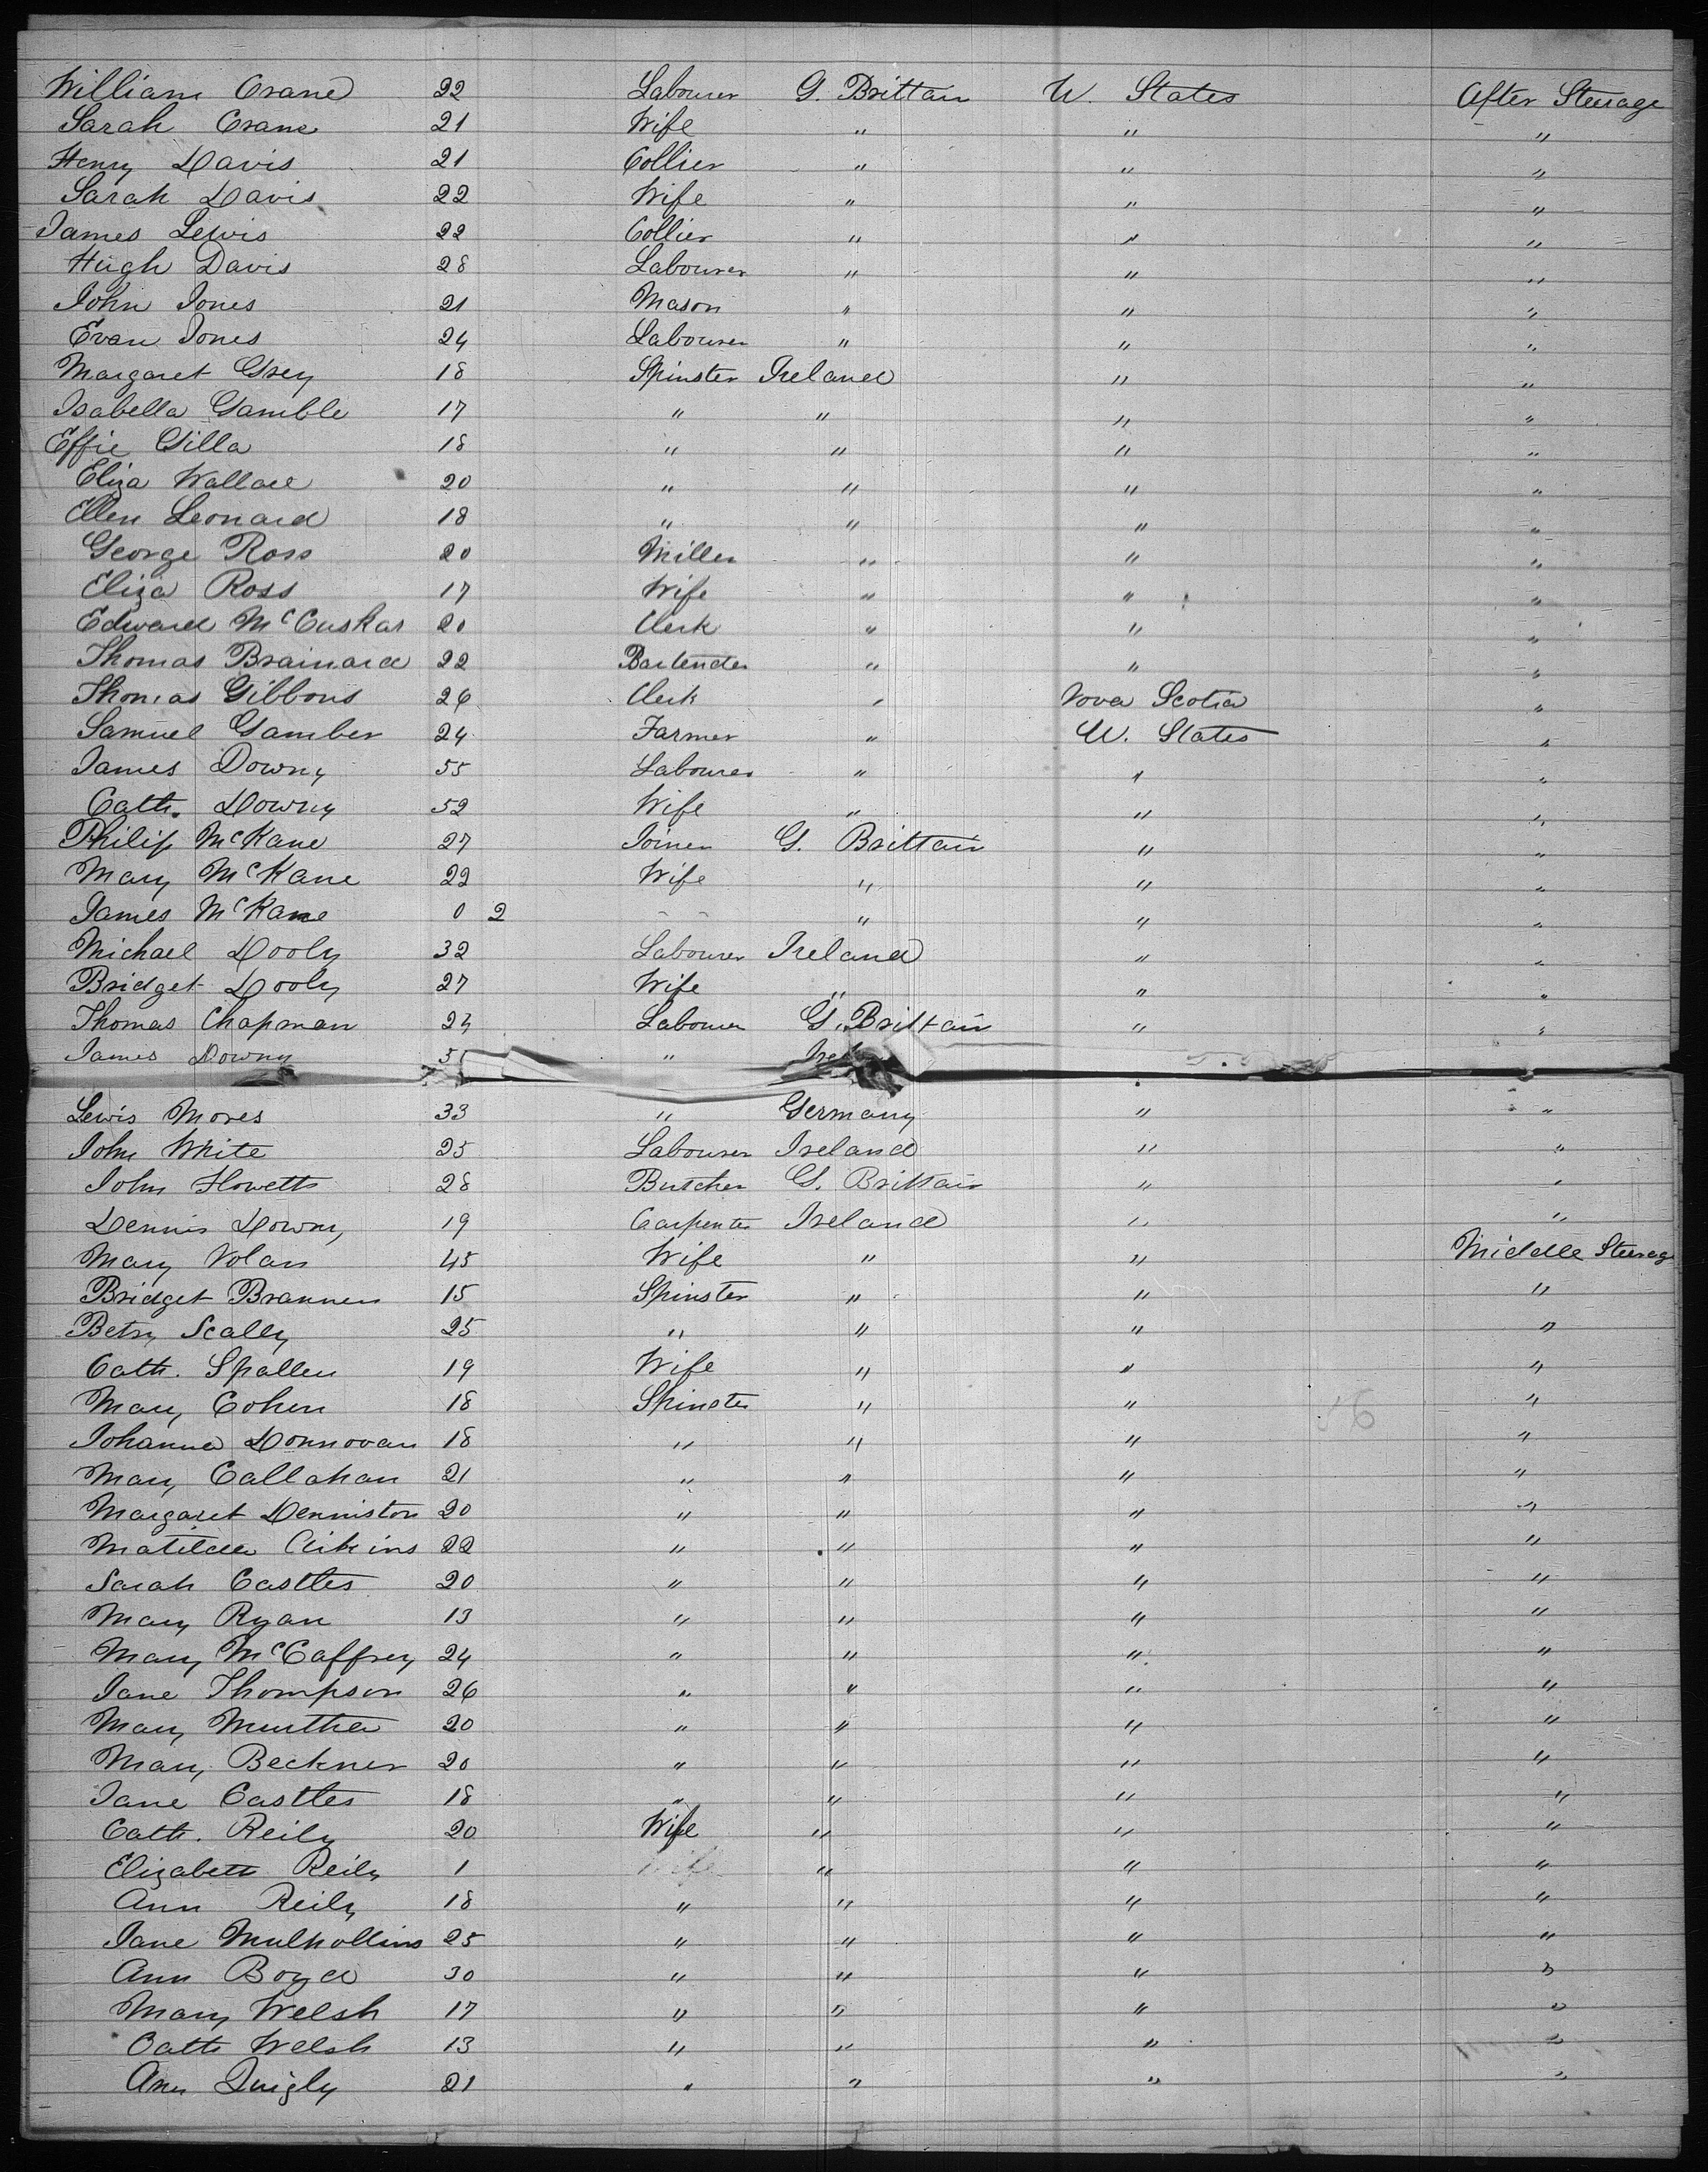 William Crane 22 Labourer G. Brittain U. States After Steerage
Sarah Crane 21 Wife " " "
Henry Davis 21 Collier " " "
Sarah Davis 22 Wife " " "
James Lewis 22 Collier " " "
Hugh Davis 28 Labourer " " "
John Jones 21 Mason " " "
Evan Jones 24 Labourer " " "
Margaret Grey 18 Spinster Ireland " "
Isabella Gamble 17 " " " "
Effie Gilla 18 " " " "
Eliza Wallace 20 " " " "
Ellen Leonard 18 " " " "
George Ross 20 Miller " " "
Eliza Ross 17 Wife " " "
Edward McCuskar 20 Clerk " " "
Thomas Brainard 22 Bartender " " "
Thomas Gibbons 26 Clerk " Nova Scotia "
Samuel Gamber 24 Farmer " U. States "
James Downy 55 Labourer " " "
Cath. Downy 52 Wife " " "
Philip McKane 27 Joiner G. Brittain " "
Mary McKane 22 Wife " " "
James McKane 0 2 - - " " "
Michael Dooly 32 Labourer Ireland " "
Bridget Dooly 27 Wife " " "
Thomas Chapman 24 Labourer G. Brittain " "
James Downy "
Lewis Mores 33 " Germany " "
John White 25 Labourer Ireland " "
John Howetts 28 Butcher G. Brittain " "
Dennis Downy 19 Carpenter Ireland " "
Mary Nolan 45 Wife " " Middle Steerag
Bridget Brannen 15 Spinster " " "
Betsy Scally 25 " " " "
Cath. Spallen 19 Wife " " "
Mary Cohen 18 Spinster " " "
Johanna Donnovan 18 " " " "
Mary Callahan 21 " " " "
Margaret Denniston 20 " " " "
Matilda Aikins 22 " " " "
Sarah Castles 20 " " " "
Mary Ryan 13 " " " "
Mary McCaffrey 24 " " " "
Jane Thompson 26 " " " "
Mary Murtha 20 " " " "
Mary Beckner 20 " " " "
Jane Castles 18 " " " "
Cath. Reily 20 Wife " " "
Elizabeth Reily 1 Wife " " "
Ann Reily 18 " " " "
Jane Mulhollins 25 " " " "
Ann Boyd 30 " " " "
Mary Welsh 17 " " " "
Cath Welsh 13 " " " "
Ann Quigly 21 " " " "